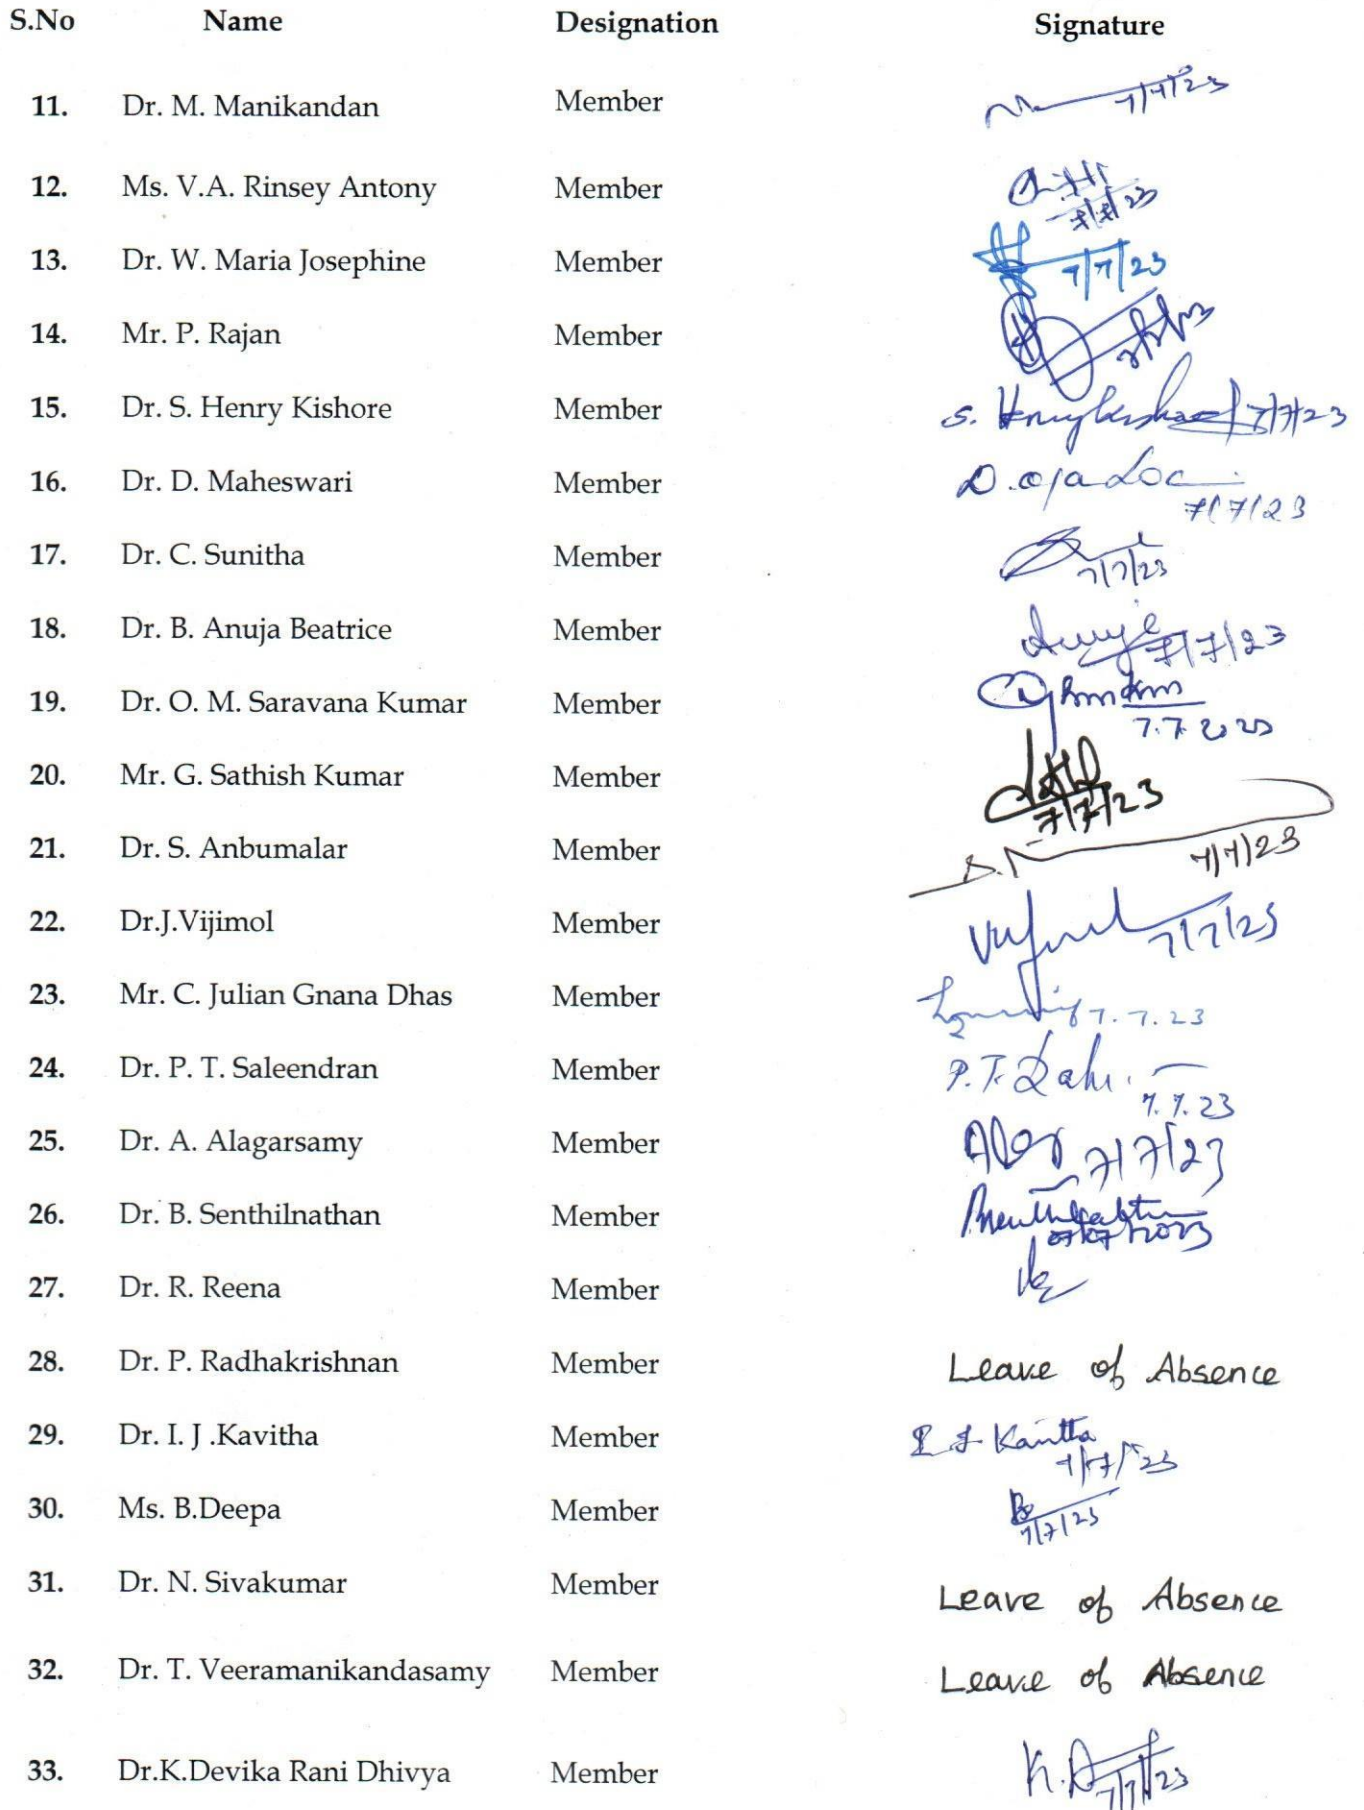 S.No Name Designation Signature
11. Dr. M. Manikandan Member 7/7/23
12. Ms. V.A. Rinsey Antony Member 7/7/23
13. Dr. W. Maria Josephine Member 7/7/23
14. Mr. P. Rajan Member
15. Dr. S. Henry Kishore Member S. 7/7/23
16. Dr. D. Maheswari Member D. 7/7/23
17. Dr. C. Sunitha Member 7/7/23
18. Dr. B. Anuja Beatrice Member 7/7/23
19. Dr. O. M. Saravana Kumar Member 7.7.2023
20. Mr. G. Sathish Kumar Member 7/7/23
21. Dr. S. Anbumalar Member 7/7/23
22. Dr.J.Vijimol Member 7/7/23
23. Mr. C. Julian Gnana Dhas Member 7.7.23
24. Dr. P. T. Saleendran Member P.T. 7.7.23
25. Dr. A. Alagarsamy Member 7/7/23
26. Dr. B. Senthilnathan Member 07/07/2023
27. Dr. R. Reena Member
28. Dr. P. Radhakrishnan Member Leave of Absence
29. Dr. I. J .Kavitha Member I J Kavitha 7/7/23
30. Ms. B.Deepa Member 7/7/23
31. Dr. N. Sivakumar Member Leave of Absence
32. Dr. T. Veeramanikandasamy Member Leave of Absence
33. Dr.K.Devika Rani Dhivya Member K.D 7/7/23